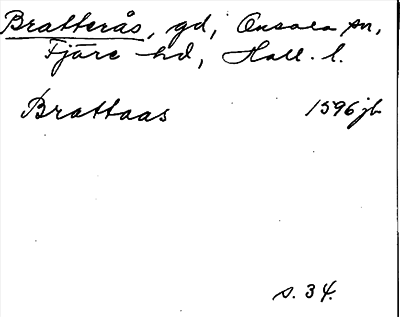 Bratterås, gd, Onsala sn,
Fjäre hd, Hall. l.
Brattaas 1596 jb
s. 34.